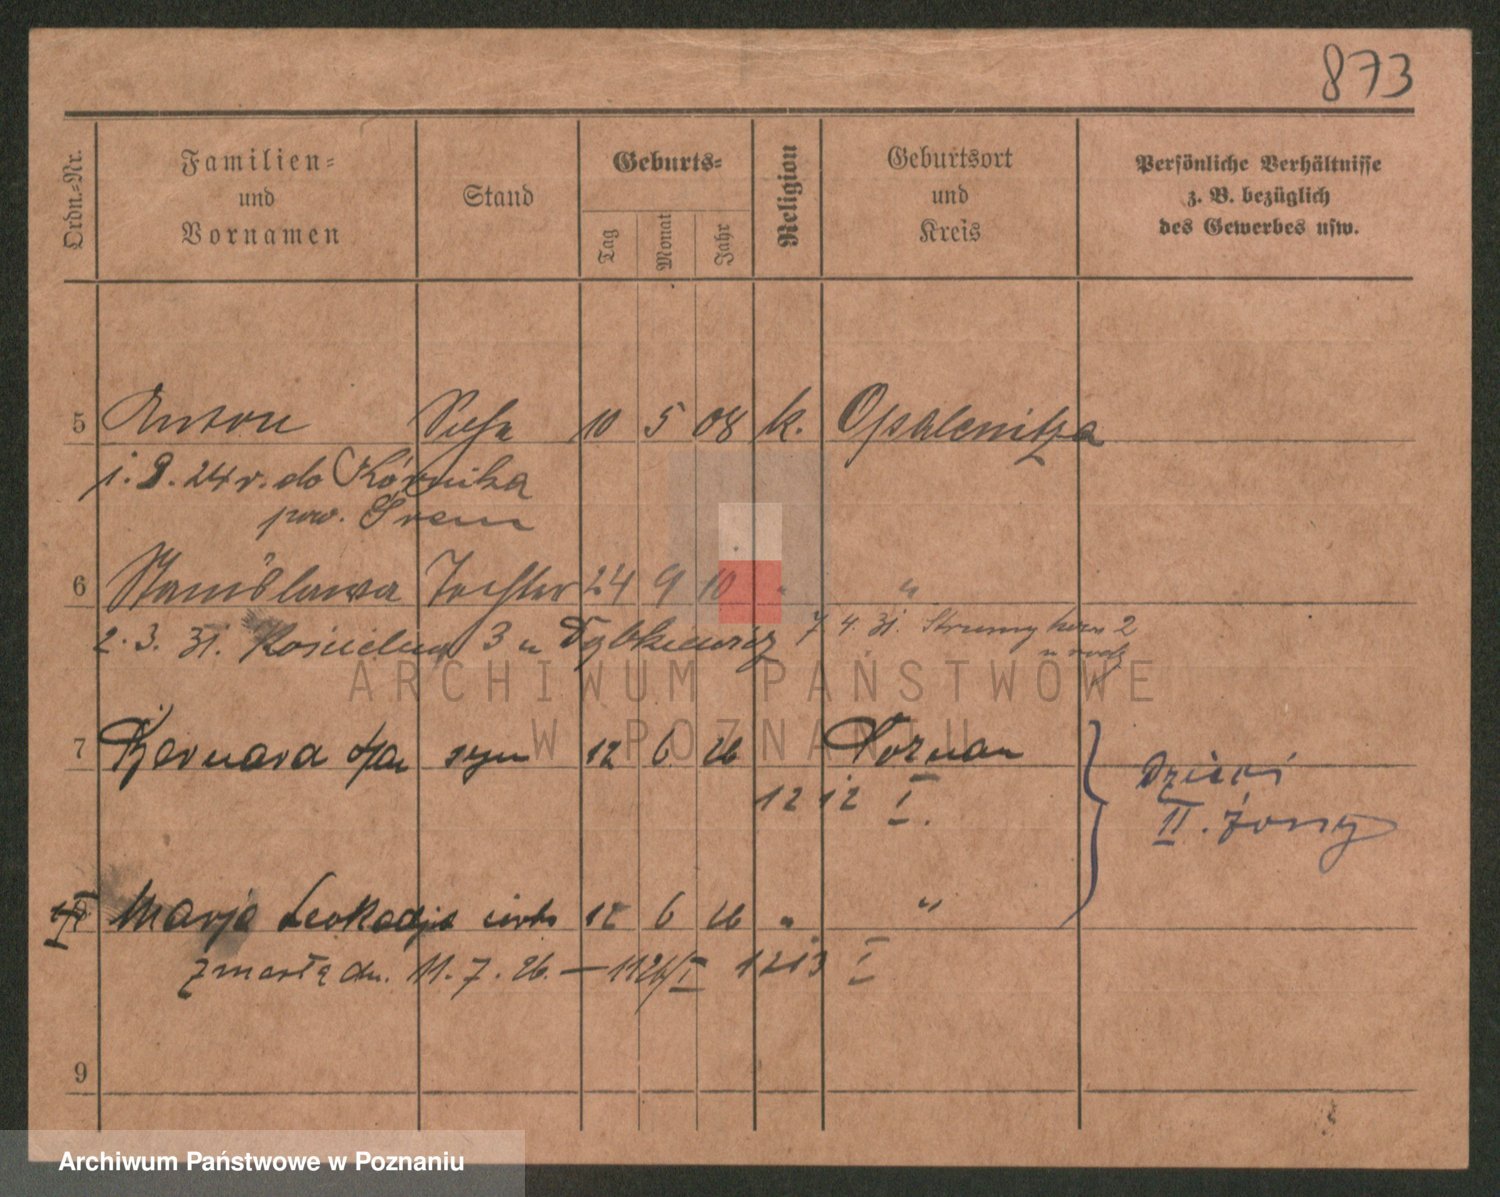 873
Ordn.-Nr.
Familien-
und
Vornamen
Stand
Geburts-
Tag
Monat
Jahr
Religion
Geburtsort
und
Kreis
Persönliche Verhältnisse
z. B. bezüglich
des Gewerbes usw.
5 Anton Sohn 10 5 08 k. Opalenitza
24 r. do Kórnika
pow. Śrem
6 Stanislawa Tochter 24 9 10 " "
2. 3. 31. 3 u 7 4. 31. 2
ARCHIWUM PAŃSTWOWE
W POZNANIU
7 syn 12 6 26 Poznan
12 12 I.
Dzieci
II. żony
8 Marja Leokadja córka 12 6 26 " "
zmarła dn. 11. 7. 26. — 1126/I 1213 I
9
Archiwum Państwowe w Poznaniu